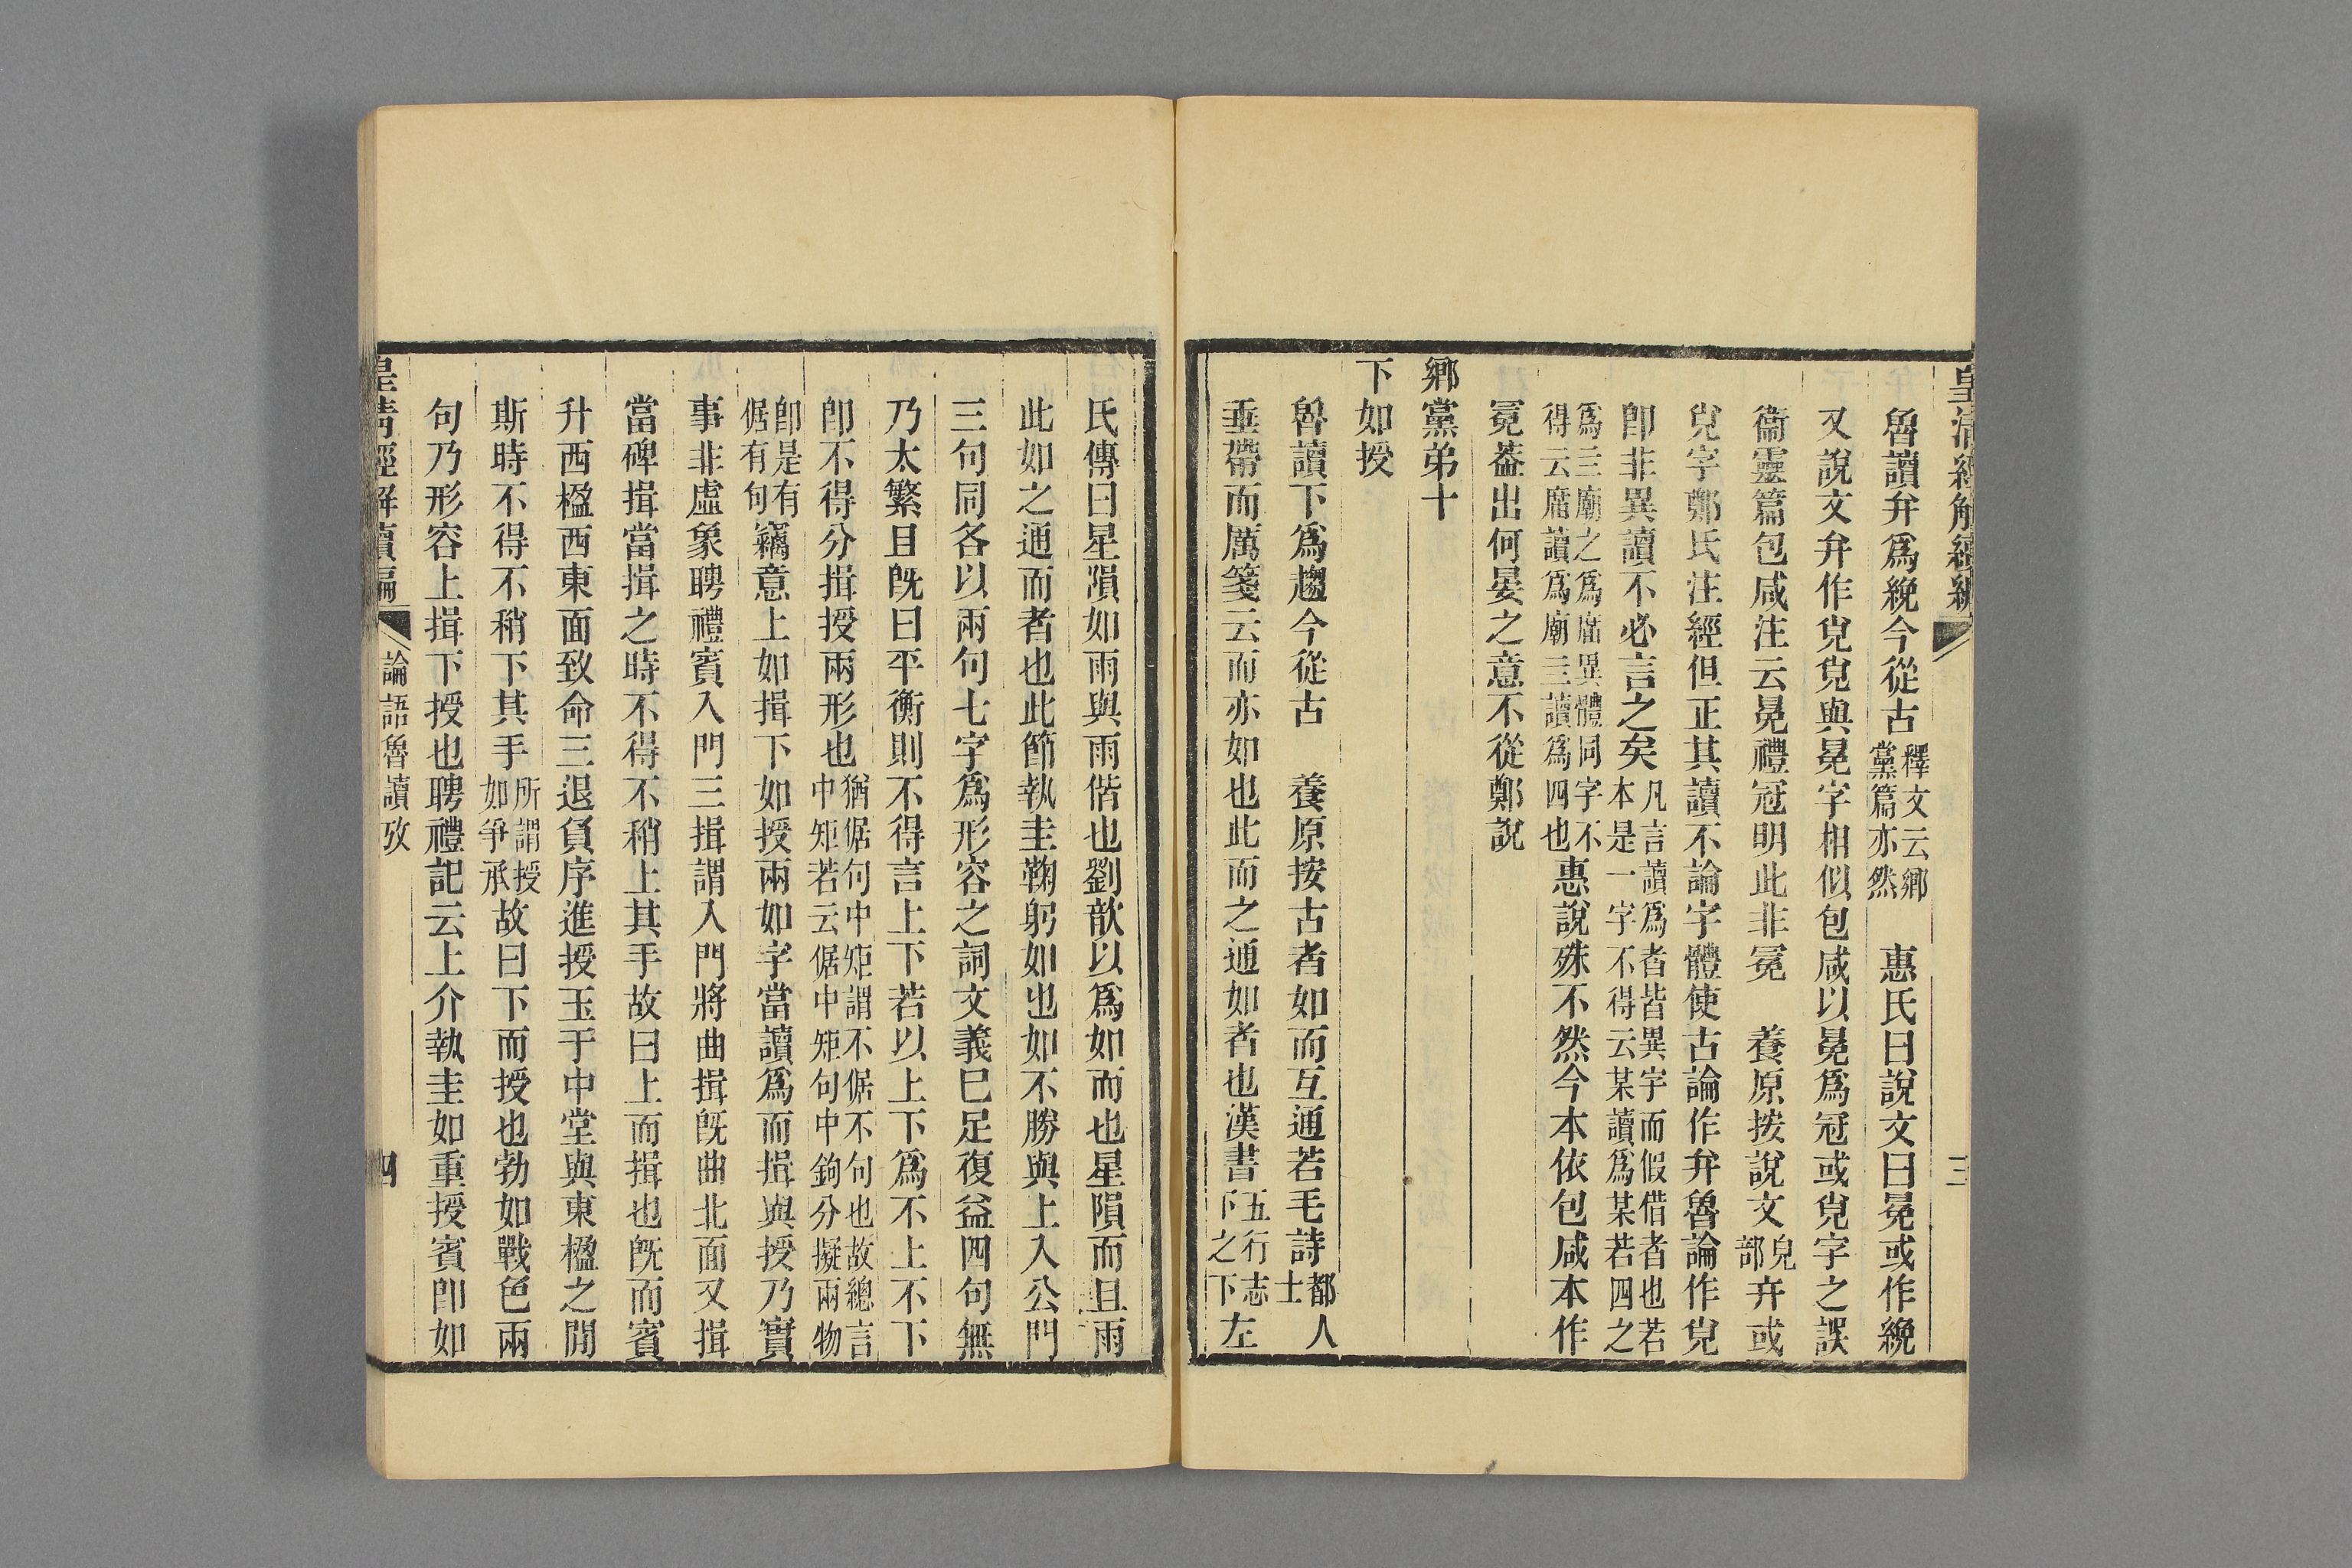 皇清經解續編
三
魯讀弁爲絻今從古釋文云鄉黨篇亦然　惠氏曰說文曰冕或作絻
又說文弁作㝸㝸與冕字相似包咸以冕爲冠或㝸字之誤
衞靈篇包咸注云冕禮冠明此非冕　養原按說文皃部弁或
㝸字鄭氏注經但正其讀不論字體使古論作弁魯論作㝸
卽非異讀不必言之矣凡言讀爲者皆異字而假借者也若本是一字不得云某讀爲某若四之
爲亖廟之爲庿異體同字不得云庿讀爲廟亖讀爲四也惠說殊不然今本依包咸本作
冕葢出何晏之意不從鄭說
鄉黨弟十
下如授
魯讀下爲趨今從古　養原按古者如而互通若毛詩都人士
垂帶而厲箋云而亦如也此而之通如者也漢書五行志下之下左
氏傳曰星隕如雨與雨偕也劉歆以爲如而也星隕而且雨
此如之通而者也此節執圭鞠躬如也如不勝與上入公門
三句同各以兩句七字爲形容之詞文義已足復益四句無
乃太繁且旣曰平衡則不得言上下若以上下爲不上不下
卽不得分揖授兩形也猶倨句中矩謂不倨不句也故總言中矩若云倨中矩句中鉤分擬兩物
卽是有倨有句竊意上如揖下如授兩如字當讀爲而揖與授乃實
事非虛象聘禮賓入門三揖謂入門將曲揖旣曲北面又揖
當碑揖當揖之時不得不稍上其手故曰上而揖也旣而賓
升西楹西東面致命三退負序進授玉于中堂與東楹之閒
斯時不得不稍下其手所謂授如爭承故曰下而授也勃如戰色兩
句乃形容上揖下授也聘禮記云上介執圭如重授賓卽如
皇清經解續編
論語魯讀攷
四